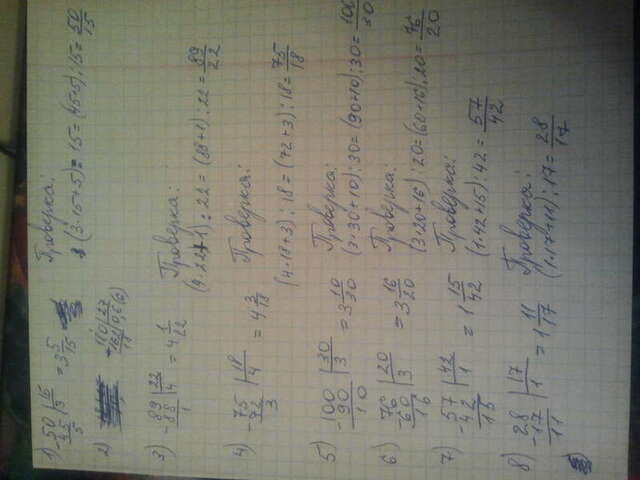 1) -50 | 15
45 | 3
5
= 3 5/15
Проверка:
(3·15+5):15=(45+5):15=50/15
2)
3) -89 | 22
88 | 4
1
= 4 1/22
Проверка:
(4·22+1):22=(88+1):22=89/22
4) -75 | 18
72 | 4
3
= 4 3/18
Проверка:
(4·18+3):18=(72+3):18=75/18
5) -100 | 30
90 | 3
10
= 3 10/30
Проверка:
(3·30+10):30=(90+10):30=100/30
6) -76 | 20
60 | 3
16
= 3 16/20
Проверка:
(3·20+16):20=(60+16):20=76/20
7) -57 | 42
42 | 1
15
= 1 15/42
Проверка:
(1·42+15):42=57/42
8) -28 | 17
17 | 1
11
= 1 11/17
Проверка:
(1·17+11):17=28/17